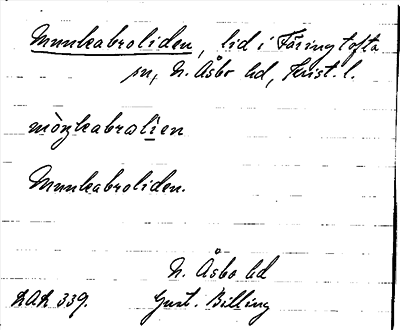 Munkabroliden, lid i Färingtofta
sn, N. Åsbo hd, Krist. l.
mòŋkabralien
Munkabroliden.
N. Åsbo hd
LAL 339. Gust. Billing